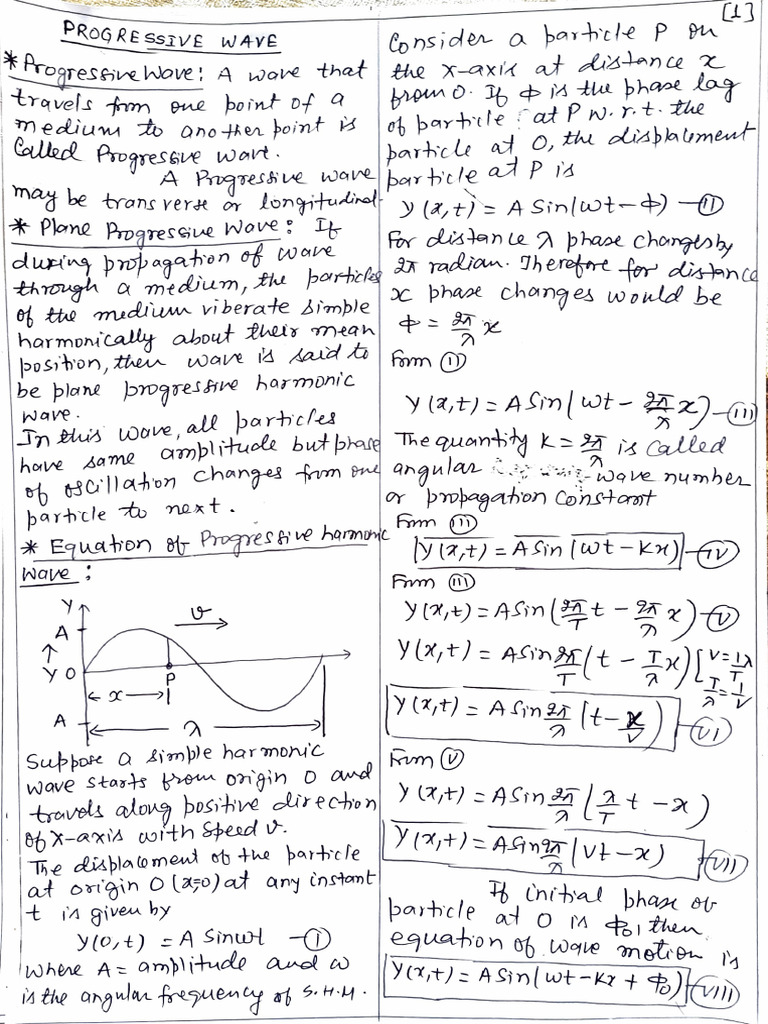 [1]
PROGRESSIVE WAVE
* Progressive Wave: A wave that
travels from one point of a
medium to another point is
Called Progressive wave.
A Progressive wave
may be transverse or longitudinal.
* Plane Progressive Wave: If
during propagation of wave
through a medium, the particles
of the medium viberate simple
harmonically about their mean
position, then wave is said to
be plane progressive harmonic
wave.
In this wave, all particles
have same amplitude but phase
of oscillation changes from one
particle to next.
* Equation of Progressive harmonic
Wave:
Y
A
v
↑
Y 0
P
← x →
A
← λ →
Suppose a simple harmonic
wave starts from origin O and
travels along positive direction
of X-axis with speed v.
The displacement of the particle
at origin O (x=0) at any instant
t is given by
Y(0,t) = A Sinωt —(i)
Where A = amplitude and ω
is the angular frequency of S.H.M.
Consider a particle P on
the x-axis at distance x
from O. If Φ is the phase lag
of particle at P w.r.t. the
particle at O, the displacement
particle at P is
Y(x,t) = A Sin(ωt - Φ) —(ii)
For distance λ phase changes by
2π radian. Therefore for distance
x phase changes would be
Φ = 2π/λ x
Form (ii)
Y(x,t) = A Sin(ωt - 2π/λ x) —(iii)
The quantity K = 2π/λ is called
angular wave number
or propagation Constant
Form (iii)
Y(x,t) = A Sin(ωt - Kx) —(iv)
Form (iii)
Y(x,t) = A Sin(2π/T t - 2π/λ x) —(v)
Y(x,t) = A Sin 2π/T (t - T/λ x) [v = 1λ/T
T/λ = 1/v
Y(x,t) = A Sin 2π/λ (t - x/v) —(vi)
Form (v)
Y(x,t) = A Sin 2π/λ (λ/T t - x)
Y(x,t) = A Sin 2π/λ (vt - x) —(vii)
If initial phase of
particle at O is Φ0, then
equation of wave motion is
Y(x,t) = A Sin(ωt - Kx + Φ0) —(viii)